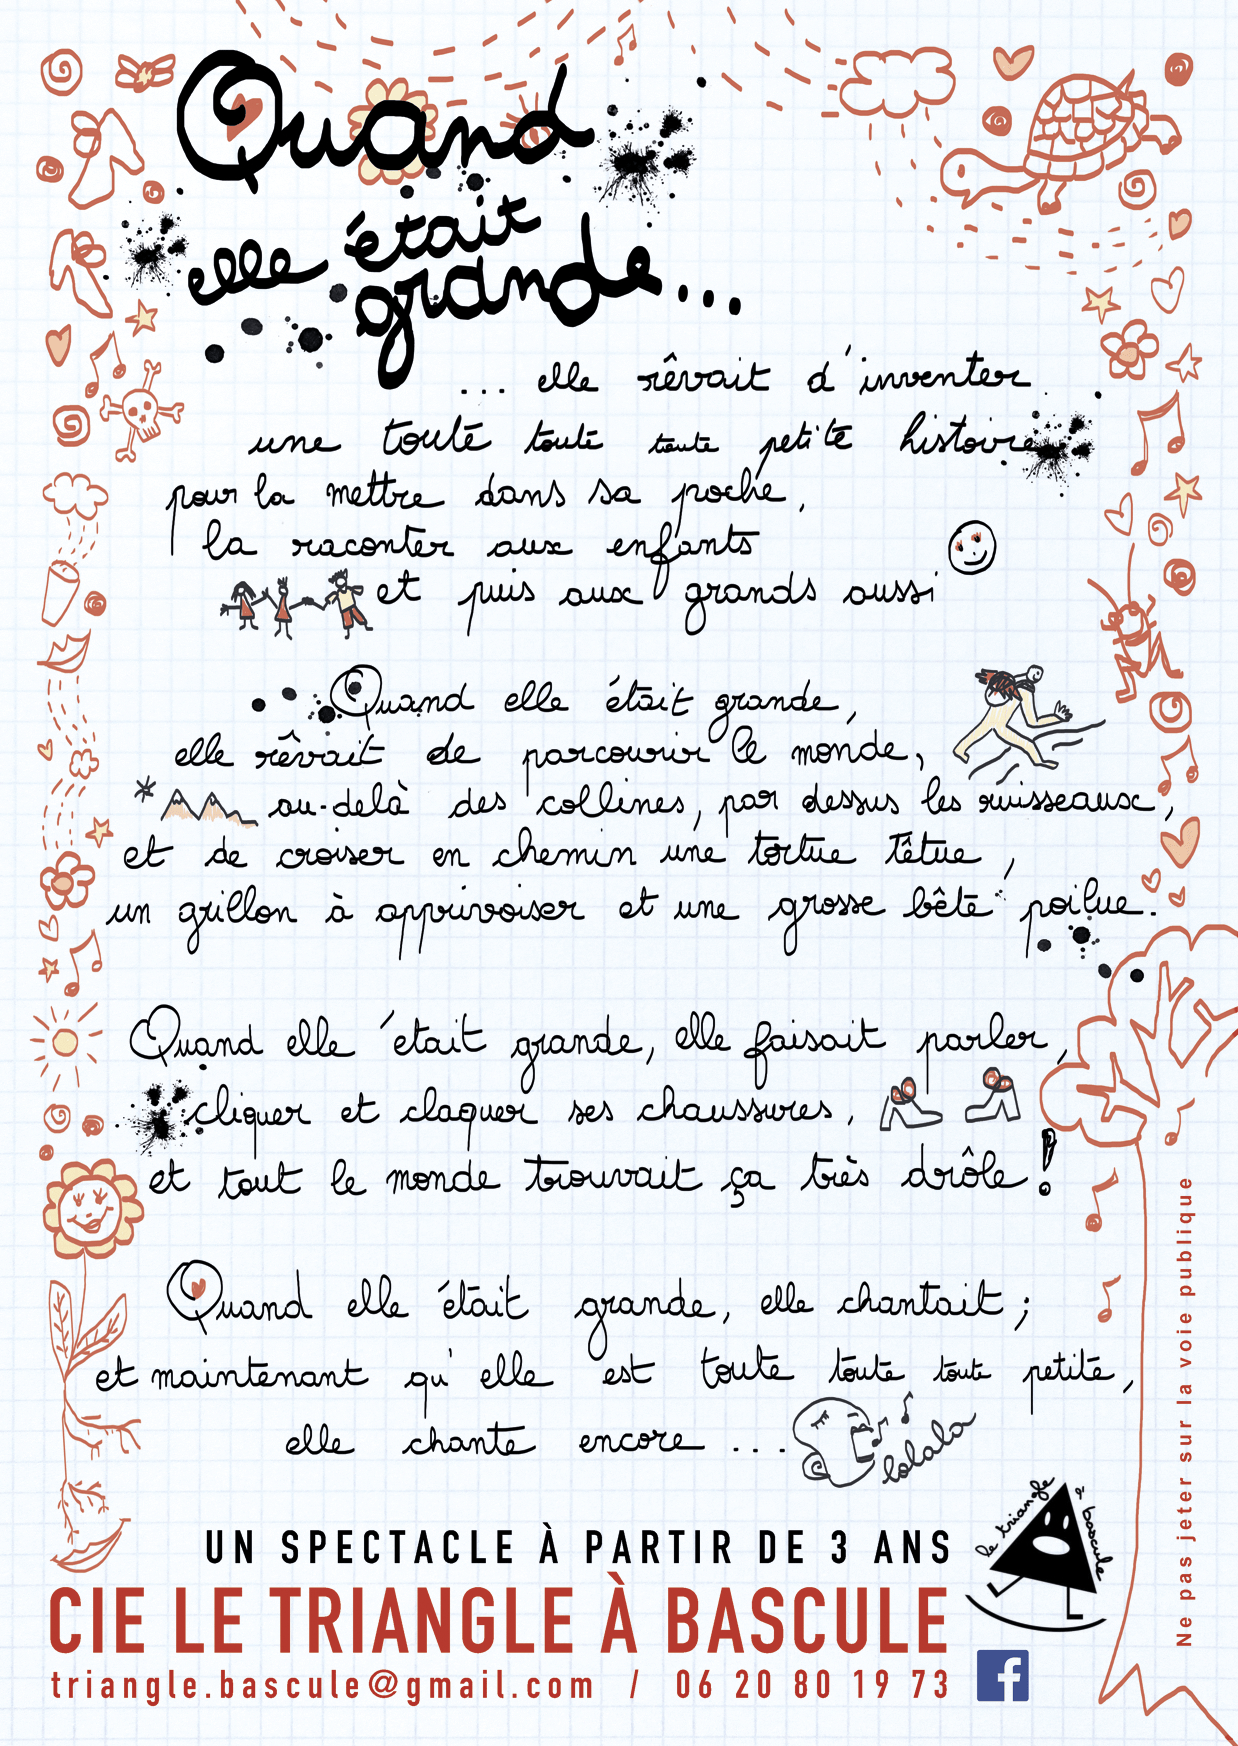 Quand
elle était
grande...
... elle rêvait d'inventer
une toute toute toute petite histoire
pour la mettre dans sa poche,
la raconter aux enfants
et puis aux grands aussi
Quand elle était grande,
elle rêvait de parcourir le monde,
* au-delà des collines, par dessus les ruisseaux,
et de croiser en chemin une tortue têtue,
un grillon à apprivoiser et une grosse bête poilue.
Quand elle était grande, elle faisait parler,
cliquer et claquer ses chaussures,
et tout le monde trouvait ça très drôle !
Quand elle était grande, elle chantait ;
et maintenant qu'elle est toute toute toute petite,
elle chante encore ...
lalala
le triangle à bascule
UN SPECTACLE À PARTIR DE 3 ANS
CIE LE TRIANGLE À BASCULE
triangle.bascule@gmail.com / 06 20 80 19 73
f
Ne pas jeter sur la voie publique